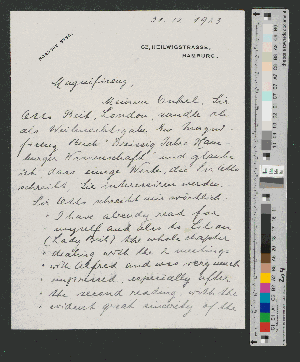 31.12.1923
63, HEILWIGSTRASSE,
HAMBURG.
Magnifizenz,
Meinem Onkel, Sir
Otto Beit, London, sandte ich
als Weihnachtsgabe
Buch
und glaube
ich dass einige Worte, die Sir Otto
schreibt Sie interessieren werden.
Sir Otto schreibt mir wörtlich:
" I have already read for
" myself and also to Lilian
" (Lady Beit) the whole chapter
" dealing with the 2 meetings
" with Alfred and was very much
" impressed, especially after
" the second reading with the
" evident great sincerity of the